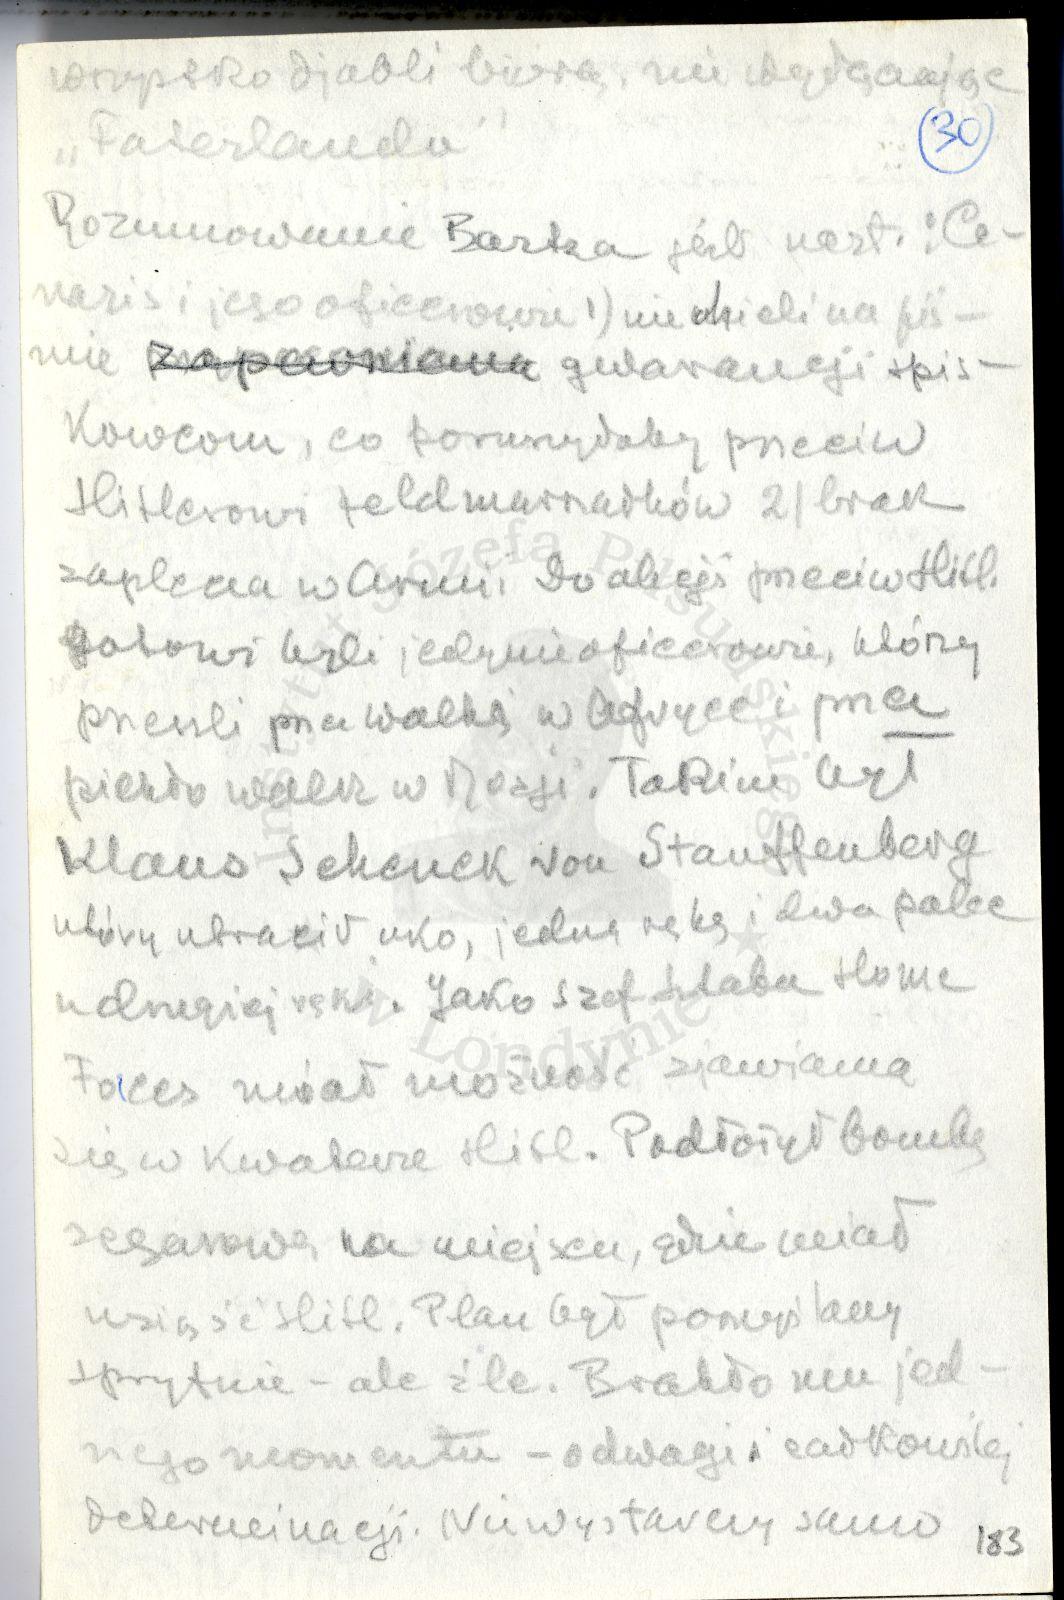 wszystko djabli biorą, nie wyłączając
„Faterlandu"
30
Rozumowanie Bartza jest nast.: Ca-
naris i jego oficerowie 1) nie mieli na piś-
mie zapewnienia gwarancji spis-
kowcom, co poruszyłoby przeciw
Hitlerowi feldmarszałków 2) brak
zaplecza w Armii. Do akcji przeciw Hitl.
gotowi byli jedynie oficerowie, którzy
przeszli przez walkę w Afryce i przez
piekło walk w Rosji. Takim był
Klaus Schenck von Stauffenberg
który utracił oko, jedną rękę i dwa palce
u drugiej ręki. Jako szef sztabu Home
Foces miał możność zjawiania
się w Kwaterze Hitl. Podłożył bombę
zegarową na miejscu, gdzie miał
usiąść Hitl. Plan był pomyślany
sprytnie – ale źle. Brakło mu jed-
nego momentu – odwagi i całkowitej
determinacji. Nie wystarczy samo
183
Instytut Józefa Piłsudskiego
w Londynie